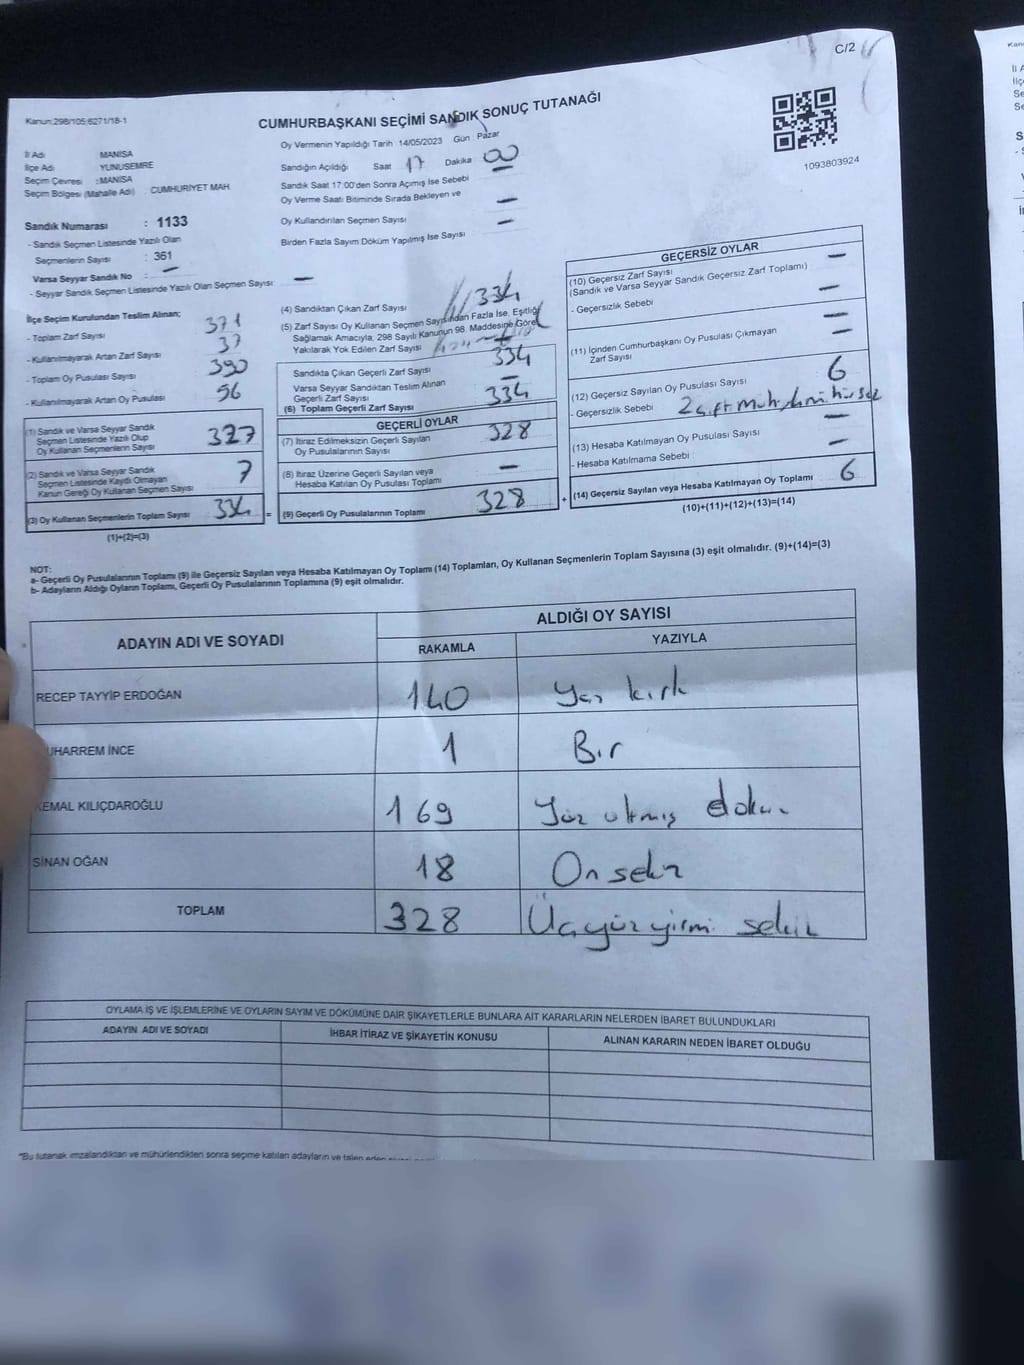 C/2
Kanun:298/105;6271/18-1
CUMHURBAŞKANI SEÇİMİ SANDIK SONUÇ TUTANAĞI
1093803924
İl Adı MANİSA
İlçe Adı YUNUSEMRE
Seçim Çevresi : MANİSA
Seçim Bölgesi (Mahalle Adı) : CUMHURİYET MAH.
Sandık Numarası : 1133
- Sandık Seçmen Listesinde Yazılı Olan
Seçmenlerin Sayısı : 361
Varsa Seyyar Sandık No : —
- Seyyar Sandık Seçmen Listesinde Yazılı Olan Seçmen Sayısı: —
Oy Vermenin Yapıldığı Tarih : 14/05/2023 Gün : Pazar
Sandığın Açıldığı Saat 17 Dakika 00
Sandık Saat 17:00'den Sonra Açımış İse Sebebi
Oy Verme Saati Bitiminde Sırada Bekleyen ve —
Oy Kullandırılan Seçmen Sayısı —
Birden Fazla Sayım Döküm Yapılmış İse Sayısı
İlçe Seçim Kurulundan Teslim Alınan;
- Toplam Zarf Sayısı 371
- Kullanılmayarak Artan Zarf Sayısı 37
- Toplam Oy Pusulası Sayısı 390
- Kullanılmayarak Artan Oy Pusulası 56
(1) Sandık ve Varsa Seyyar Sandık
Seçmen Listesinde Yazılı Olup
Oy Kullanan Seçmenlerin Sayısı 327
(2) Sandık ve Varsa Seyyar Sandık
Seçmen Listesinde Kaydı Olmayan
Kanun Gereği Oy Kullanan Seçmen Sayısı 7
(3) Oy Kullanan Seçmenlerin Toplam Sayısı 334 =
(1)+(2)=(3)
(4) Sandıktan Çıkan Zarf Sayısı 334
(5) Zarf Sayısı Oy Kullanan Seçmen Sayısından Fazla İse, Eşitliği
Sağlamak Amacıyla, 298 Sayılı Kanunun 98. Maddesine Göre
Yakılarak Yok Edilen Zarf Sayısı
Sandıkta Çıkan Geçerli Zarf Sayısı 334
Varsa Seyyar Sandıktan Teslim Alınan
Geçerli Zarf Sayısı —
(6) Toplam Geçerli Zarf Sayısı 334
GEÇERLİ OYLAR
(7) İtiraz Edilmeksizin Geçerli Sayılan
Oy Pusulalarının Sayısı 328
(8) İtiraz Üzerine Geçerli Sayılan veya
Hesaba Katılan Oy Pusulası Toplamı —
(9) Geçerli Oy Pusulalarının Toplamı 328 +
GEÇERSİZ OYLAR
(10) Geçersiz Zarf Sayısı —
(Sandık ve Varsa Seyyar Sandık Geçersiz Zarf Toplamı)
- Geçersizlik Sebebi —
(11) İçinden Cumhurbaşkanı Oy Pusulası Çıkmayan —
Zarf Sayısı —
(12) Geçersiz Sayılan Oy Pusulası Sayısı 6
- Geçersizlik Sebebi 2 çift mühür
(13) Hesaba Katılmayan Oy Pusulası Sayısı —
- Hesaba Katılmama Sebebi —
(14) Geçersiz Sayılan veya Hesaba Katılmayan Oy Toplamı 6
(10)+(11)+(12)+(13)=(14)
NOT:
a- Geçerli Oy Pusulalarının Toplamı (9) ile Geçersiz Sayılan veya Hesaba Katılmayan Oy Toplamı (14) Toplamları, Oy Kullanan Seçmenlerin Toplam Sayısına (3) eşit olmalıdır. (9)+(14)=(3)
b- Adayların Aldığı Oyların Toplamı, Geçerli Oy Pusulalarının Toplamına (9) eşit olmalıdır.
ADAYIN ADI VE SOYADI ALDIĞI OY SAYISI
RAKAMLA YAZIYLA
RECEP TAYYİP ERDOĞAN 140 Yüz kırk
UHARREM İNCE 1 Bir
KEMAL KILIÇDAROĞLU 169 Yüz altmış dokuz
SİNAN OĞAN 18 On sekiz
TOPLAM 328 Üçyüzyirmi sekiz
OYLAMA İŞ VE İŞLEMLERİNE VE OYLARIN SAYIM VE DÖKÜMÜNE DAİR ŞİKAYETLERLE BUNLARA AİT KARARLARIN NELERDEN İBARET BULUNDUKLARI
ADAYIN ADI VE SOYADI İHBAR İTİRAZ VE ŞİKAYETİN KONUSU ALINAN KARARIN NEDEN İBARET OLDUĞU
*Bu tutanak imzalandıktan ve mühürlendikten sonra seçime katılan adayların ve talep eden